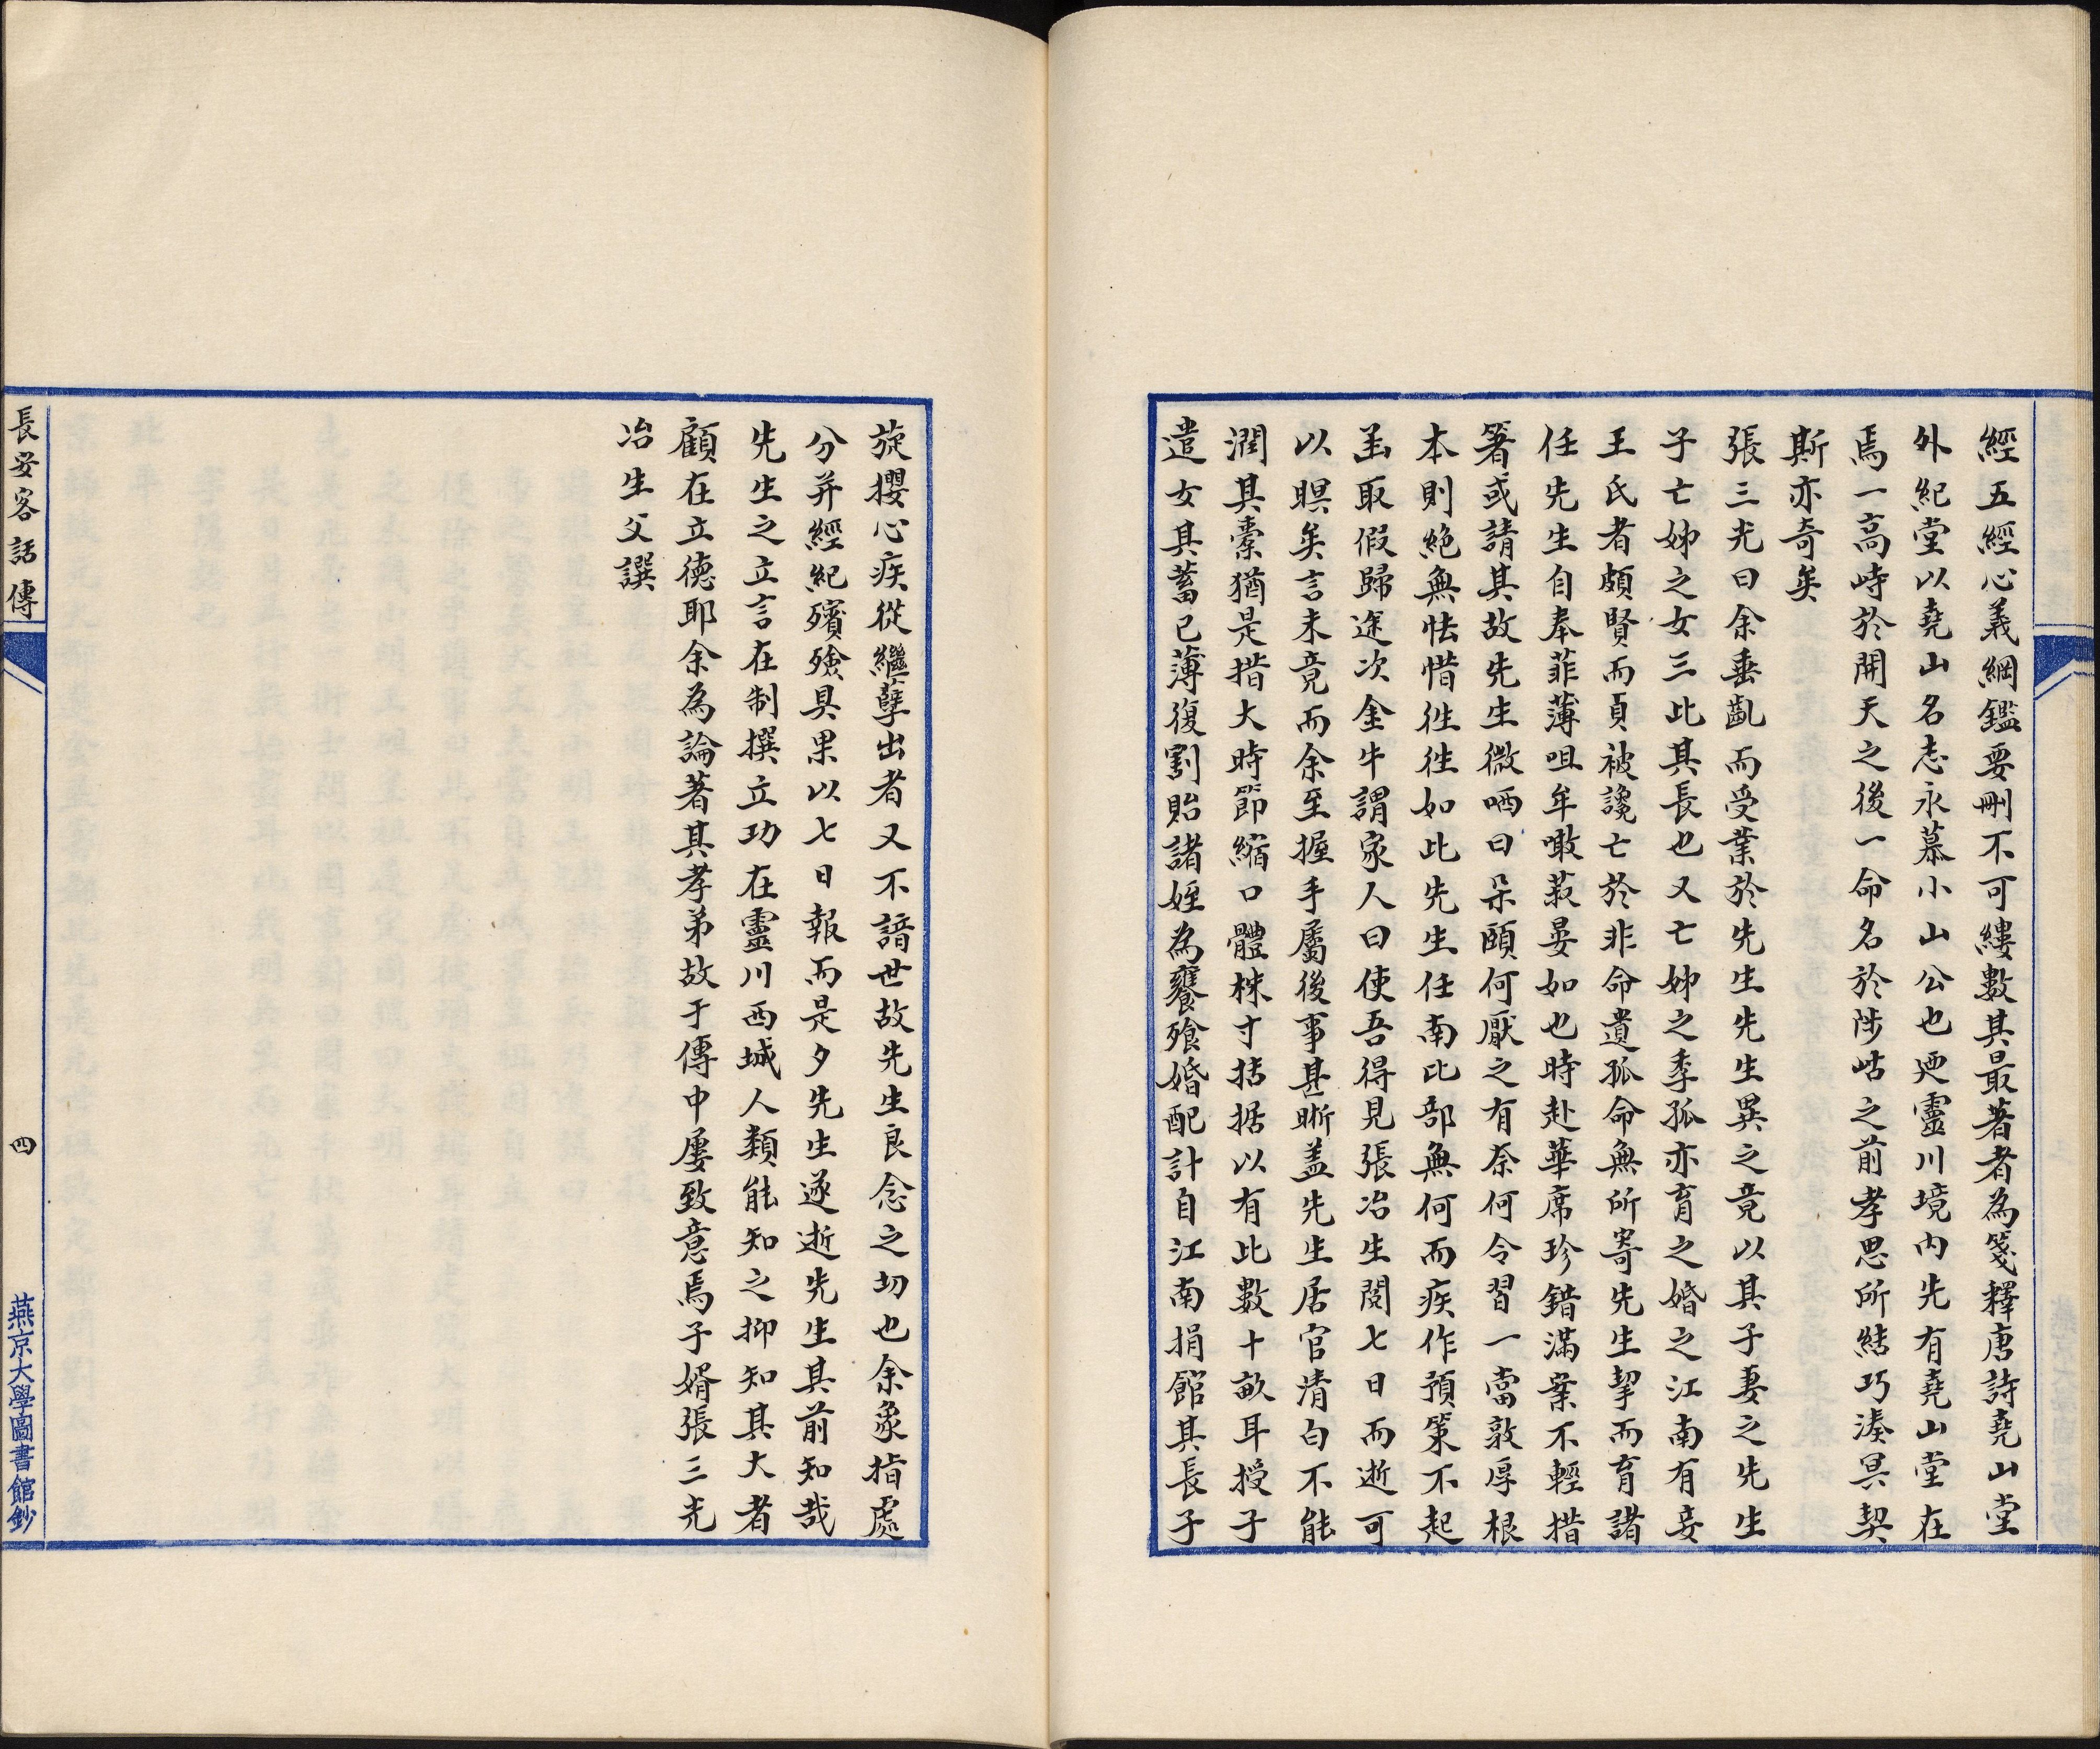 經五經心義綱鑑要刪不可縷數其最著者為箋釋唐詩堯山堂
外紀堂以堯山名志永慕小山公也迺靈川境內先有堯山堂在
焉一高峙於開天之後一命名於陟岵之前孝思所結巧湊冥契
斯亦奇矣
張三光曰余垂齓而受業於先生先生異之竟以其子妻之先生
子亡姊之女三此其長也又亡姊之季孤亦育之婚之江南有妾
王氏者頗賢而貞被讒亡於非命遺孤命無所寄先生挈而育諸
任先生自奉菲薄咀牟噉菽晏如也時赴華席珍錯滿案不輕措
箸或請其故先生微哂曰朵頤何厭之有奈何令習一當敦厚根
本則絕無怯惜徃徃如此先生任南比部無何而疾作預策不起
亟取假歸途次金牛謂家人曰使吾得見張冶生閱七日而逝可
以暝矣言未竟而余至握手屬後事甚晰盖先生居官清白不能
潤其橐猶是措大時節縮口體株寸拮据以有此數十畝耳授子
遣女其蓄已薄復割貽諸姪為饔飱婚配計自江南捐館其長子
旋攖心疾從繼孽出者又不諳世故先生良念之切也余彖指處
分并經紀殯殮具果以七日報而是夕先生遂逝先生其前知哉
先生之立言在制撰立功在靈川西城人類能知之抑知其大者
顧在立德耶余為論著其孝弟故于傳中屢致意焉子婿張三光
冶生父譔
長安客話傳
四
燕京大學圖書館鈔